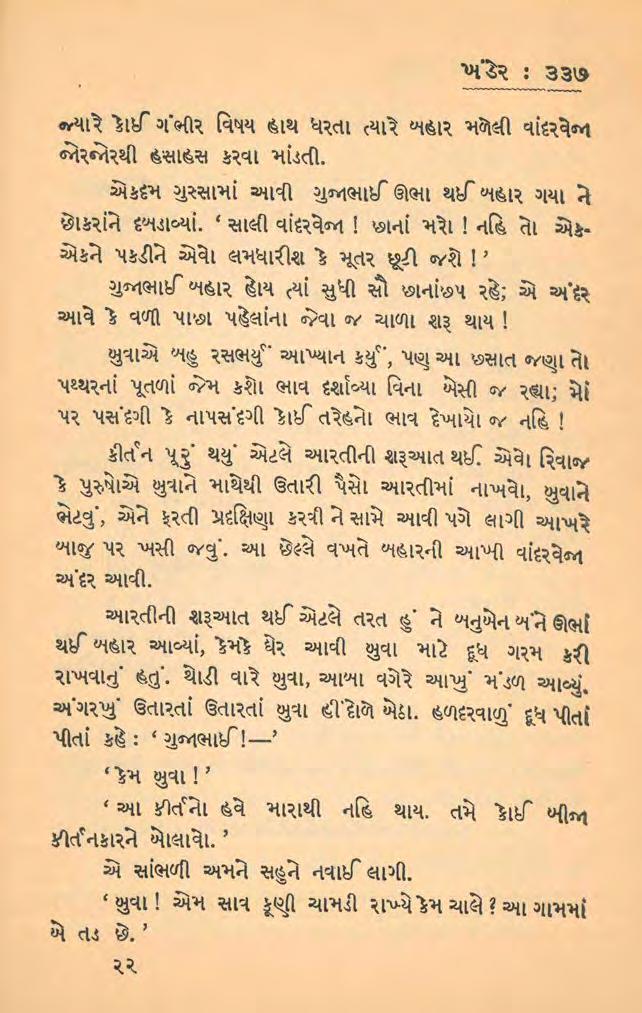 ખંડેર : ૩૩૭
જ્યારે કોઈ ગંભીર વિષય હાથ ધરતા ત્યારે બહાર મળેલી વાંદરવેજા
જોરજોરથી હસાહસ કરવા માંડતી.
એકદમ ગુસ્સામાં આવી ગુજાભાઈ ઊભા થઈ બહાર ગયા ને
છોકરાંને દબડાવ્યાં. ‘ સાલી વાંદરવેજા ! છાનાં મરો ! નહિ તો એક-
એકને પકડીને એવો લમધારીશ કે મૂતર છૂટી જશે ! ’
ગુજાભાઈ બહાર હોય ત્યાં સુધી સૌ છાનાંછપ રહે; એ અંદર
આવે કે વળી પાછા પહેલાંના જેવા જ ચાળા શરૂ થાય !
બુવાએ બહુ રસભર્યું આખ્યાન કર્યું, પણ આ છસાત જણા તો
પથ્થરનાં પૂતળાં જેમ કશો ભાવ દર્શાવ્યા વિના બેસી જ રહ્યા; મોં
પર પસંદગી કે નાપસંદગી કોઈ તરેહનો ભાવ દેખાયો જ નહિ !
કીર્તન પૂરું થયું એટલે આરતીની શરૂઆત થઈ. એવો રિવાજ
કે પુરુષોએ બુવાને માથેથી ઉતારી પૈસો આરતીમાં નાખવો, બુવાને
ભેટવું, એને ફરતી પ્રદક્ષિણા કરવી ને સામે આવી પગે લાગી આખરે
બાજુ પર ખસી જવું. આ છેલ્લે વખતે બહારની આખી વાંદરવેજા
અંદર આવી.
આરતીની શરૂઆત થઈ એટલે તરત હું ને બનુબેન બંને ઊભાં
થઈ બહાર આવ્યાં, કેમકે ઘેર આવી બુવા માટે દૂધ ગરમ કરી
રાખવાનું હતું. થોડી વારે બુવા, આબા વગેરે આખું મંડળ આવ્યું.
અંગરખું ઉતારતાં ઉતારતાં બુવા હીંદોળે બેઠા. હળદરવાળું દૂધ પીતાં
પીતાં કહે : ‘ ગુજાભાઈ !—’
‘ કેમ બુવા ! ’
‘ આ કીર્તનો હવે મારાથી નહિ થાય. તમે કોઈ બીજા
કીર્તનકારને બોલાવો. ’
એ સાંભળી અમને સહુને નવાઈ લાગી.
‘ બુવા ! એમ સાવ કૂણી ચામડી રાખ્યે કેમ ચાલે ? આ ગામમાં
બે તડ છે. ’
૨૨